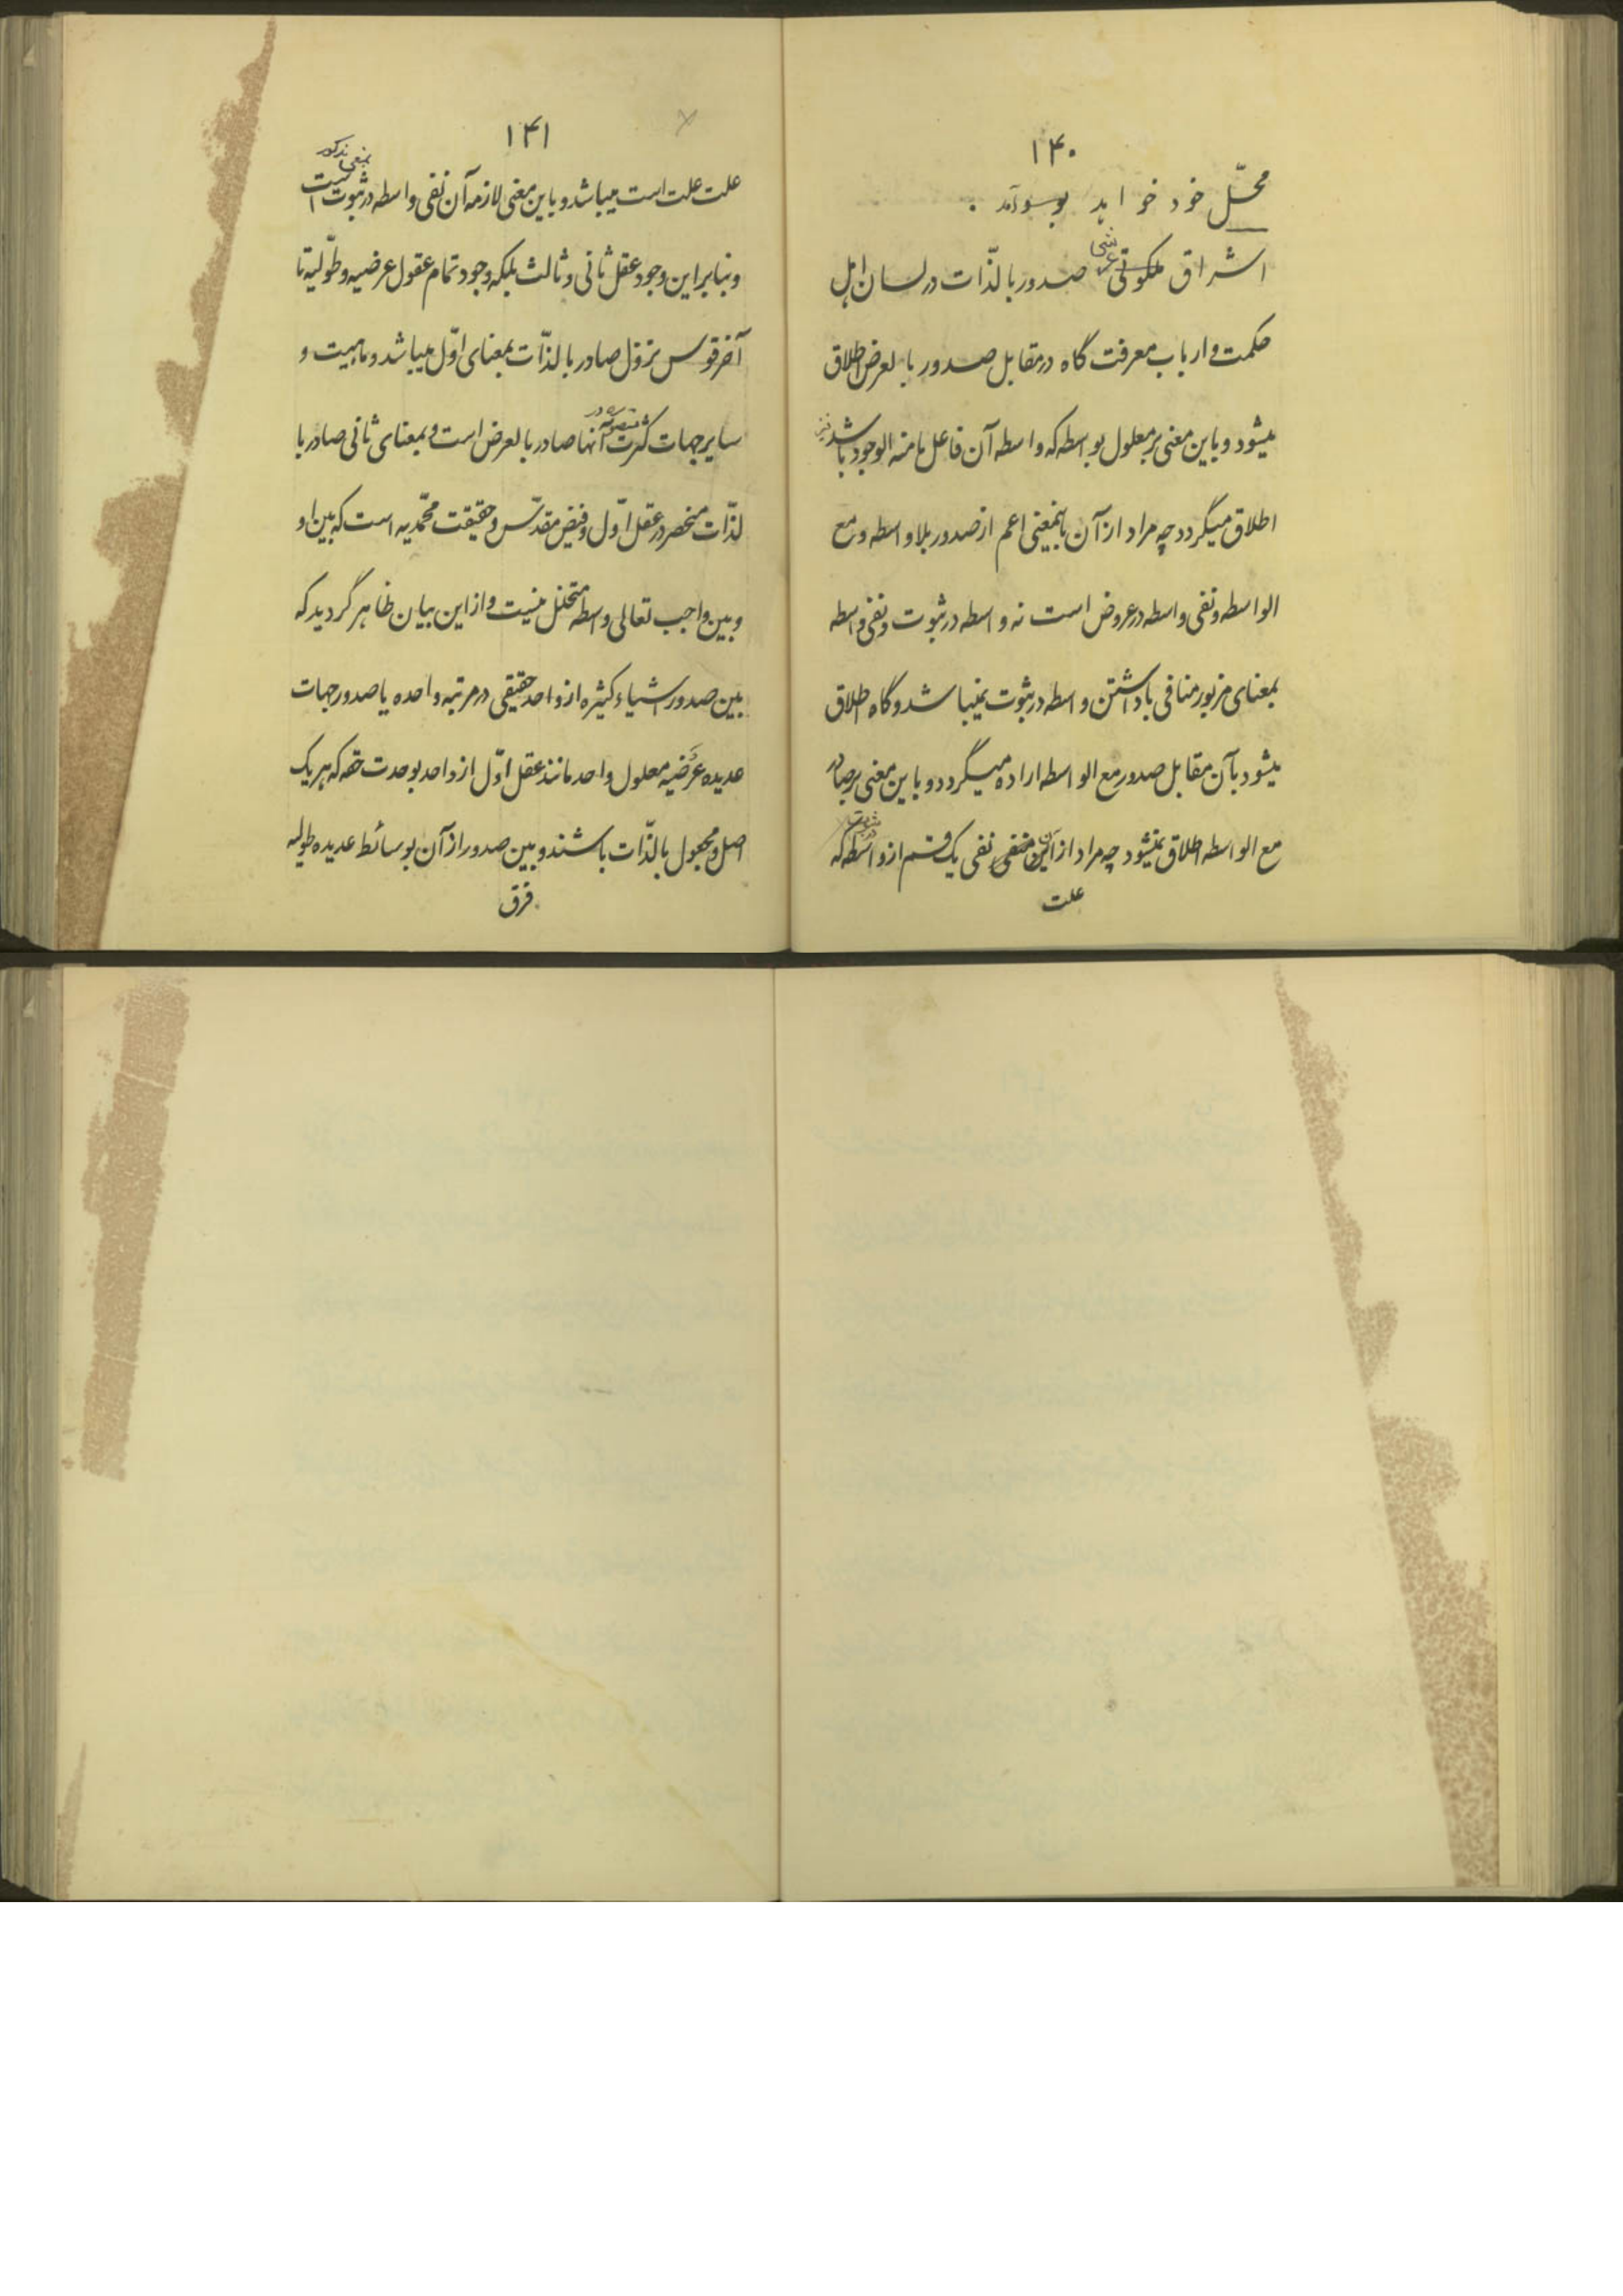 ۱۴۰
محلّ خود خواهد بوسوآمد .
اشراق ملکوتی عرشی صدور بالذّات در لسان اهل
حکمت و ارباب معرفت گاه در مقابل صدور بالعرض اطلاق
میشود و باین معنی بر معلول بواسطه که واسطه آن فاعل مامنه الوجود باشد نیز
اطلاق میگردد چه مراد از آن باینمعنی اعم از صدور بلاواسطه و مع
الواسطه و نفی واسطه در عروض است نه واسطه در ثبوت و نفی واسطه
بمعنای مزبور منافی با داشتن واسطه در ثبوت نمیباشد و گاه اطلاق
میشود بآن مقابل صدور مع الواسطه اراده میگردد و باین معنی بر صادر
مع الواسطه اطلاق نمیشود چه مراد از این نفی یک قسم از واسطه در ثبوت که
علت
۱۴۱
علت علت است میباشد و باین معنی لازمه آن نفی واسطه در ثبوت بمعنی مذکور است
و بنابراین وجود عقل ثانی و ثالث بلکه وجود تمام عقول عرضیه و طولّیه تا
آخر قوس نزول صادر بالذّات بمعنای اوّل میباشد و ماهیت و
سایر جهات کثرت متصوره در آنها صادر بالعرض است و بمعنای ثانی صادر با
لذّات منحصر در عقل اوّل و فیض مقدّس و حقیقت محمّدیه است که بین او
و بین واجب تعالی واسطه متخلل نیست و از این بیان ظاهر گردید که
بین صدور اشیاء کثیره از واحد حقیقی در مرتبه واحده یا صدور جهات
عدیده عَرَضیه معلول واحد مانند عقل اوّل از واحد بوحدت حقه که هر یک
اصل و مجعول بالذّات باشند و بین صدور از آن بوسائط عدیده طولیه
فرق